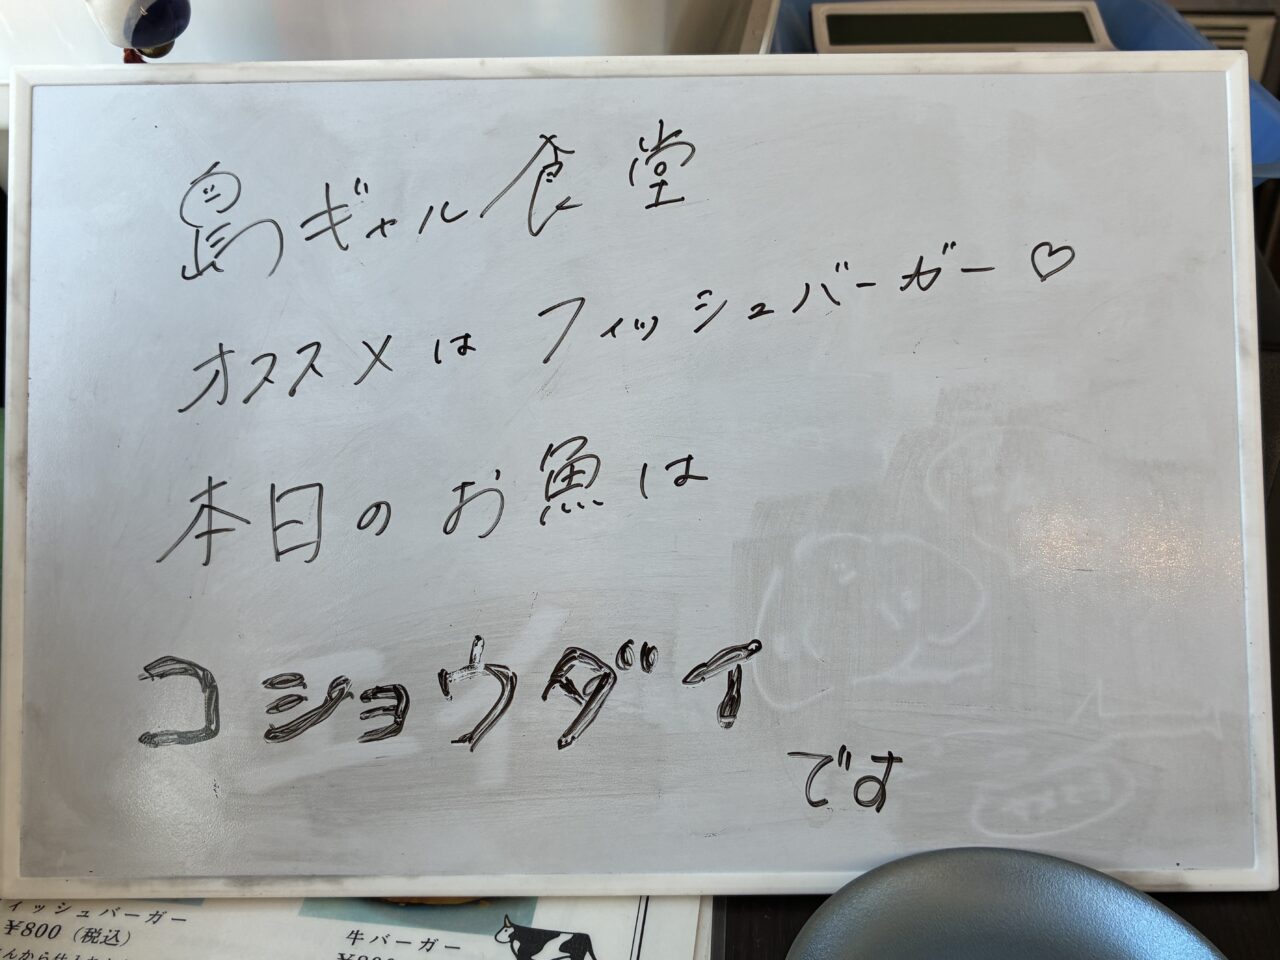 島ギャル食堂
オススメは フィッシュバーガー♡
本日のお魚は
コショウダイ
です
ィッシュバーガー
¥800 (税込)
牛バーガー